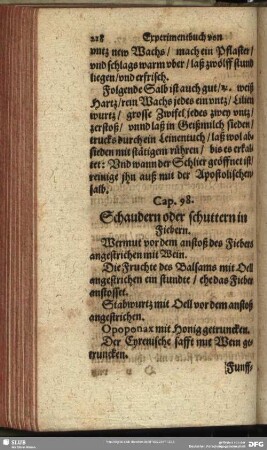 218 Experimentbuch von
vntz new Wachs / mach ein Pflaster /
vnd schlags warm vber / laß zwölff stund
liegen / vnd erfrisch.
Folgende Salb ist auch gut / ꝛc. weiß
Hartz / rein Wachs jedes ein vntz / Lilien
wurtz / grosse Zwifel jedes zwey vntz /
zerstoß / vnnd laß in Geißmilch sieden /
trucks durch ein Leinentuch / laß wol ab-
sieden mit stätigem rühren / bis es erkal-
tet: Vnd wann der Schlier geöffnet ist /
reinige jhn auß mit der Apostolischen
salb.
Cap. 98.
Schaudern oder schuttern in
Fiebern.
Wermut vor dem anstoß des Fiebers
angestrichen mit Wein.
Die Fruchte des Balsams mit Oell
angestrichen ein stundte / ehe das Fieber
anstosset.
Stabwurtz mit Oell vor dem anstoß
angestrichen.
Opoponax mit Honig getruncken.
Der Cyrenische safft mit Wein ge-
truncken.
Funff-
SLUB